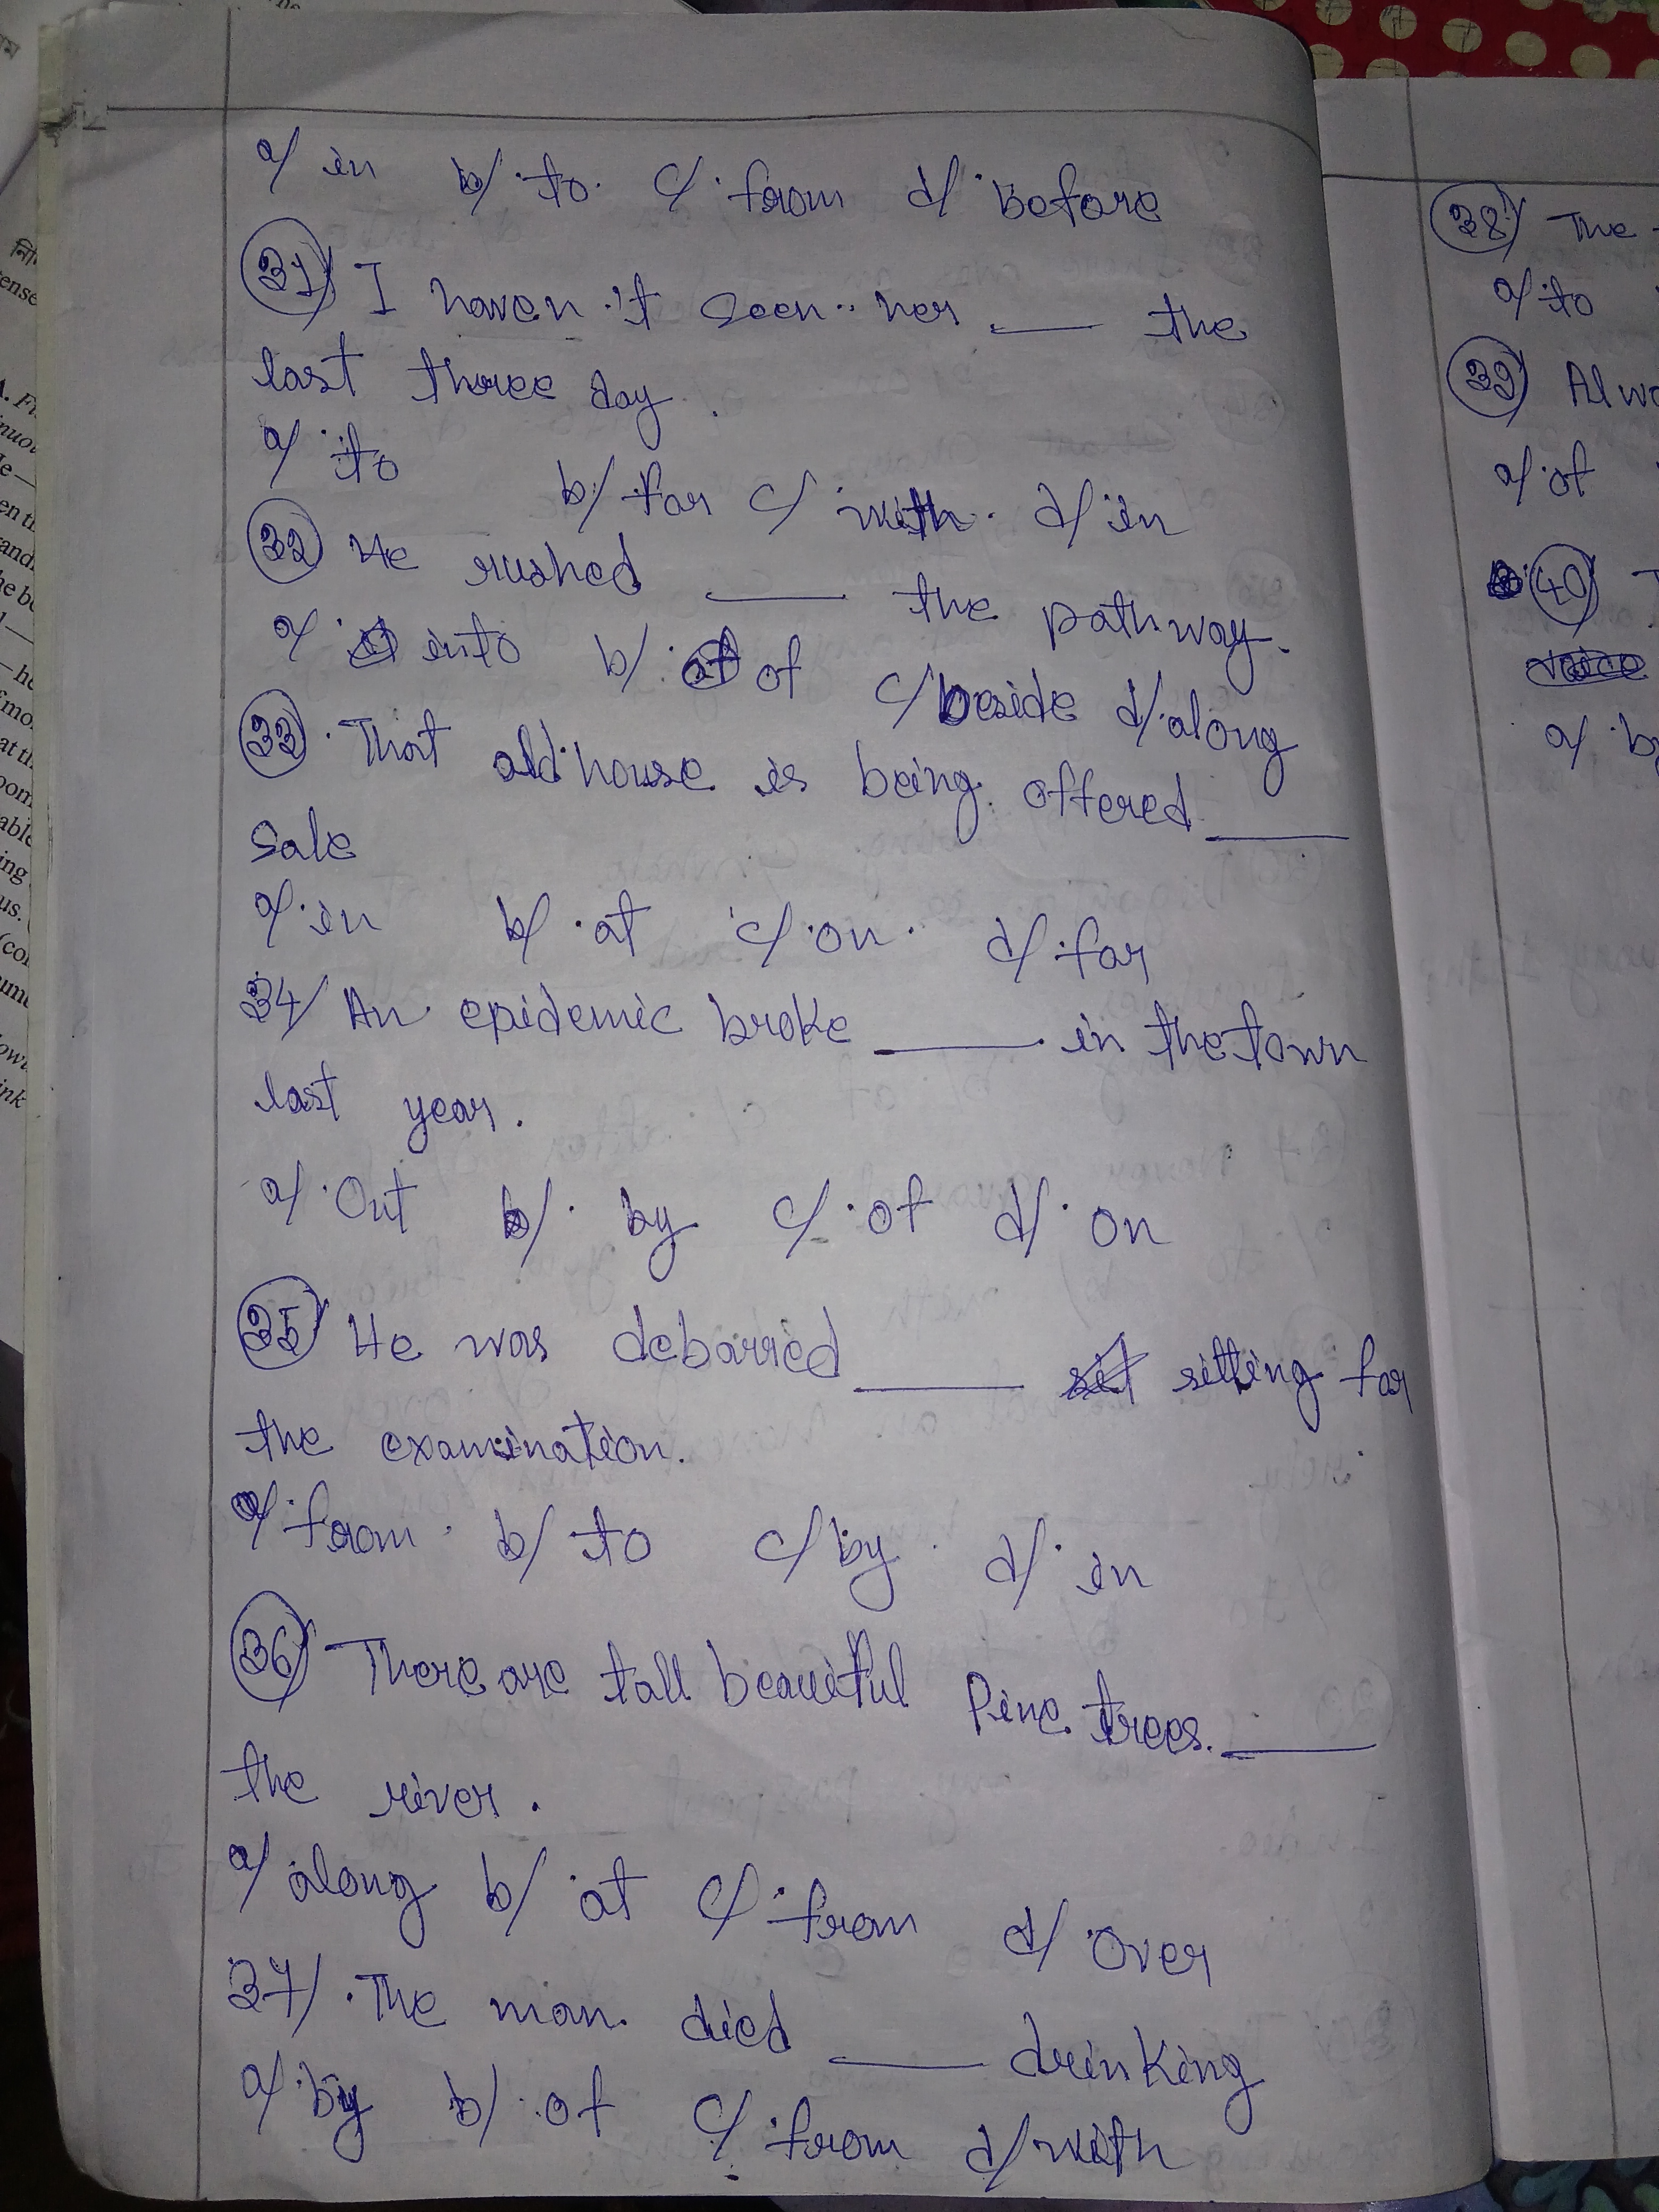 a/ in b/ to c/ from d/ before
31/ I haven't seen her ___ the
last three day.
a/ to b/ for c/ with d/ in
32 He rushed ___ the pathway.
a/ into b/ of c/ beside d/ along
33. That old house is being offered ___
sale
a/ in b/ at c/ on d/ for
34/ An epidemic broke ___ in the town
last year.
a/ Out b/ by c/ of d/ on
35/ He was debarred ___ sitting for
the examination.
a/ from b/ to c/ by d/ in
36/ There are tall beautiful Pine trees ___
the river.
a/ along b/ at c/ from d/ over
37/ The man died ___ drinking
a/ by b/ of c/ from d/ with
38/ The
a/ to
39/ Alwa
a/ of
40/
a/ by